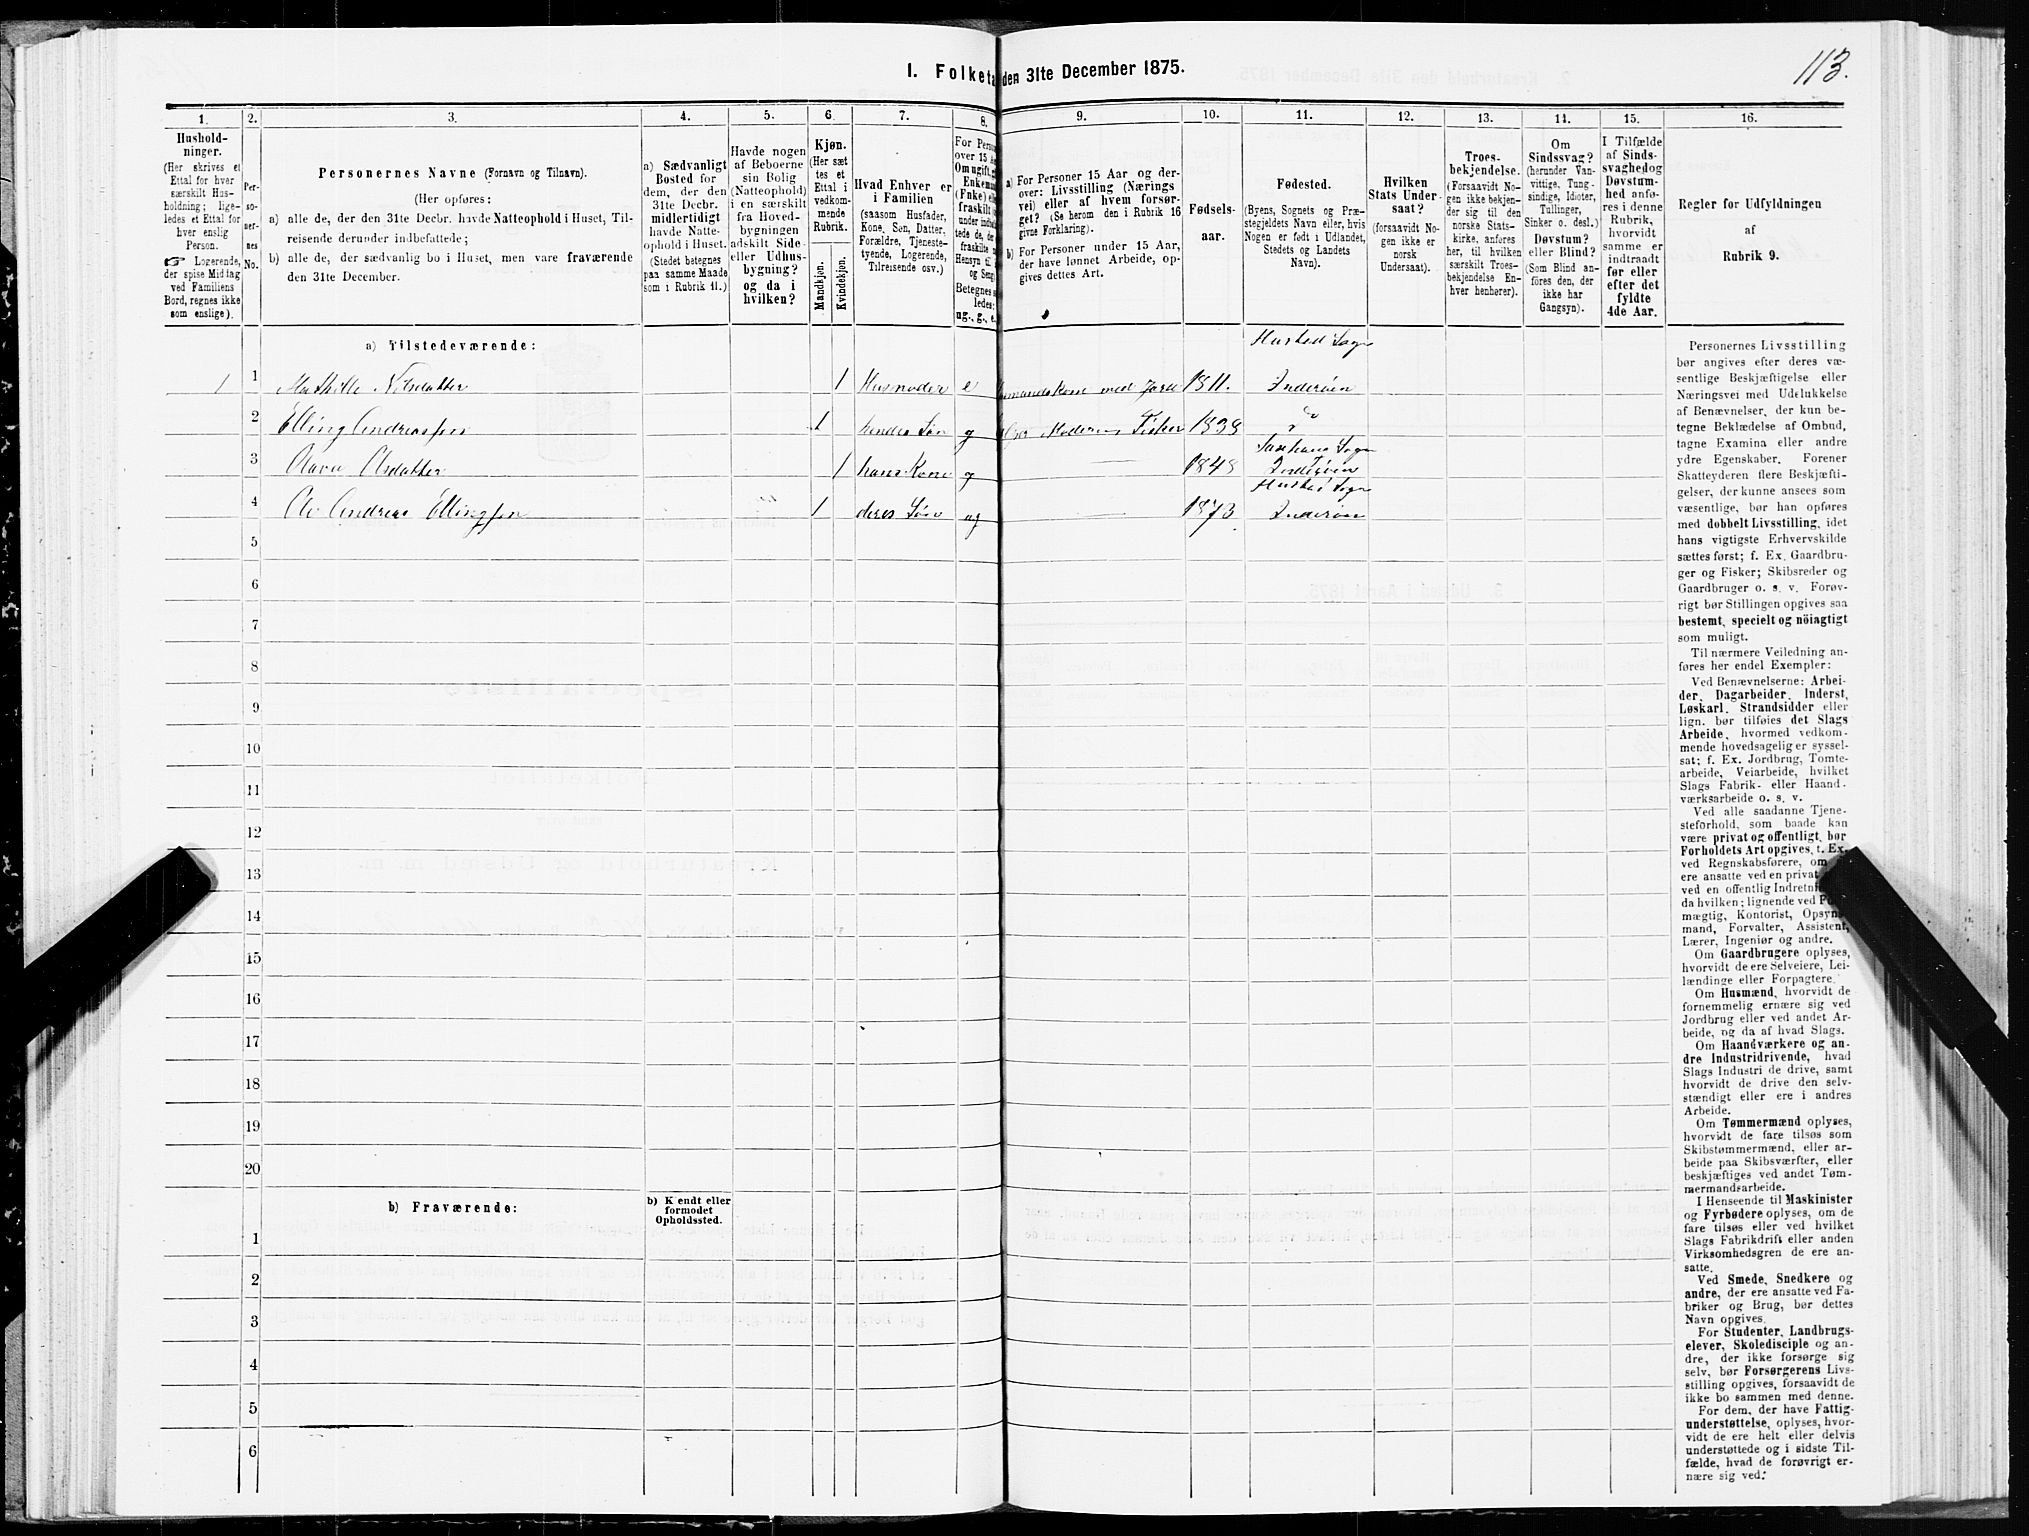 113.
I. Folketa den 31te December 1875.
1. 2. 3. 4. 5. 6. 7. 8. 9. 10. 11. 12. 13. 14. 15. 16.
Hushold-
ninger.
(Her skrives et
Ettal for hver
særskilt Hus-
holdning; lige-
ledes et Ettal for
hver enslig
Person.
☞ Logerende,
der spise Middag
ved Familiens
Bord, regnes ikke
som enslige).
Per-
so-
ner-
nes
No.
Personernes Navne (Fornavn og Tilnavn).
(Her opføres:
a) alle de, der den 31te Decbr. havde Natteophold i Huset, Til-
reisende derunder indbefattede;
b) alle de, der sædvanlig bo i Huset, men vare fraværende
den 31te December.
a) Sædvanligt
Bosted for
dem, der den
31te Decbr.
midlertidigt
havde Natte-
ophold i Huset.
(Stedet betegnes
paa samme Maade
som i Rubrik 11.)
Havde nogen
af Beboerne
sin Bolig
(Natteophold)
i en særskilt
fra Hoved-
bygningen
adskilt Side-
eller Udhus-
bygning?
og da i
hvilken?
Kjøn.
(Her sæt-
tes et
Ettal i
vedkom-
mende
Rubrik.
Mandkjøn.
Kvindekjøn.
Hvad Enhver er
i Familien
(saasom Husfader,
Kone, Søn, Datter,
Forældre, Tjeneste-
tyende, Logerende,
Tilreisende osv.)
For Person
over 15 A
Om ugift, g
Enkeman
(Fnke) el
fraskilt
under indbe
tede de, de
fraskilte
Hensyn til
og Seng
Betegnes
ledes:
ug., g., e.
a) For Personer 15 Aar og der-
over: Livsstilling (Nærings
vei) eller af hvem forsør-
get? (Se herom den i Rubrik 16
givne Forklaring).
b) For Personer under 15 Aar,
der have lønnet Arbeide, op-
gives dettes Art.
Fødsels-
aar.
Fødested.
(Byens, Sognets og Præ-
stegjeldets Navn eller, hvis
Nogen er født i Udlandet,
Stedets og Landets
Navn).
Hvilken
Stats Under-
saat?
(forsaavidt No-
gen ikke er
norsk
Undersaat).
Troes-
bekjendelse.
(Forsaavidt No-
gen ikke bekjen-
der sig til den
norske Stats-
kirke, anføres
her, til hvilken
særskilt Troes-
bekjendelse En-
hver henhører).
Om
Sindssvag?
(herunder Van-
vittige, Tung-
sindige, Idioter,
Tullinger,
Sinker o. desl.)
Døvstum?
eller Blind?
(Som Blind an-
føres den, der
ikke har
Gangsyn).
I Tilfælde
af Sinds-
svaghed og
Døvstum-
hed anfø-
res i denne
Rubrik,
hvorvidt
samme er
indtraadt
før eller
efter det
fyldte
4de Aar.
Regler for Udfyldningen
af
Rubrik 9.
a) Tilstedeværende:
Hustad Sogn
1 1 Mathille Nilsdatter 1 Husmoder e mandskone med Jord 1811. Inderøen
2 Elling Andreassen 1 hendes Søn g Moderen Fisker 1838
Sogn
3 Olsdatter 1 hans Kone g 1848 Inderøen
Hustad Sogn
4 Ole Andreas Ellingsen 1 deres Søn ug 1873. Inderøen
5
6
7
8
9
10
11
12
13
14
15
16
17
18
19
20
b) Fraværende:
b) Kjendt eller
formodet
Opholdssted.
1
2
3
4
5
6
Personernes Livsstilling
bør angives efter deres væ-
sentlige Beskjæftigelse eller
Næringsvei med Udelukkelse
af Benævnelser, der kun be-
tegne Beklædelse af Ombud,
tagne Examina eller andre
ydre Egenskaber. Forener
Skatteyderen flere Beskjæfti-
gelser, der kunne ansees som
væsentlige, bør han opføres
med dobbelt Livsstilling, idet
hans vigtigste Erhvervskilde
sættes først; f. Ex. Gaardbru-
ger og Fisker; Skibsreder og
Gaardbruger o. s. v. Forøv-
rigt bør Stillingen opgives saa
bestemt, specielt og nöiagtigt
som muligt.
Til nærmere Veiledning an-
føres her endel Exempler:
Ved Benævnelserne: Arbei-
der, Dagarbeider, Inderst,
Løskarl, Strandsidder eller
lign. bør tilføies det Slags
Arbeide, hvormed vedkom-
mende hovedsagelig er syssel-
sat; f. Ex. Jordbrug, Tomte-
arbeide, Veiarbeide, hvilket
Slags Fabrik- eller Haand-
værksarbeide o. s. v.
Ved alle saadanne Tjene-
steforhold, som baade kan
være privat og offentligt, bør
Forholdets Art opgives, f. Ex.
ved Regnskabsførere, om
ere ansatte ved en privat
ved en offentlig Indretn
da hvilken; lignende ved
mægtig, Kontorist, Opsyns-
mand, Forvalter, Assistent,
Lærer, Ingeniør og andre.
Om Gaardbrugere oplyses,
hvorvidt de ere Selveiere, Lei-
lændinge eller Forpagtere.
Om Husmænd, hvorvidt de
fornemmelig ernære sig ved
Jordbrug eller ved andet Ar-
beide, og da af hvad Slags.
Om Haandværkere og an-
dre Industridrivende, hvad
Slags Industri de drive, samt
hvorvidt de drive den selv-
stændigt eller ere i andres
Arbeide.
Om Tømmermænd oplyses,
hvorvidt de fare tilsøs som
Skibstømmermænd, eller ar-
beide paa Skibsværfter, eller
beskjæftiges ved andet Tøm-
mermandsarbeide.
I Henseende til Maskinister
og Fyrbødere oplyses, om de
fare tilsøs eller ved hvilket
Slags Fabrikdrift eller anden
Virksomhedsgren de ere an-
satte.
Ved Smede, Snedkere og
andre, der ere ansatte ved Fa-
briker og Brug, bør dettes
Navn opgives.
For Studenter, Landbrugs-
elever, Skoledisciple og an-
dre, der ikke forsørge sig
selv, bør Forsørgerens Livs-
stilling opgives, forsaavidt de
ikke bo sammen med denne.
For dem, der have Fattig-
understøttelse, oplyses, hvor-
vidt de ere helt eller delvis
understøttede og i sidste Til-
fælde, hvad de forøvrigt er-
nære sig ved.